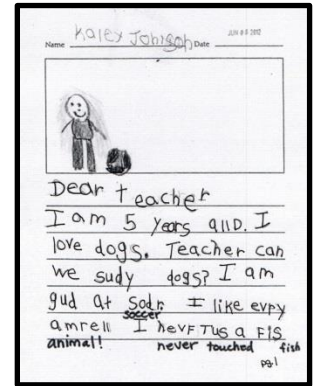 Name Kaley Johnson Date JUN 06 2012
Dear teacher
I am 5 years allD. I
love dogs. Teacher can
we sudy dogs? I am
gud at Sodr. I like evry
soccer
amrell I hevF TUS a FIS
animal! never touched fish
pg.1